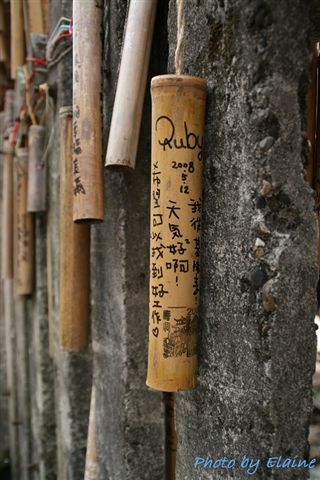 Ruby
2008
5.12
我從基隆來!
天氣好²啊!
希望可以找到好工作♡
Photo by Elaine